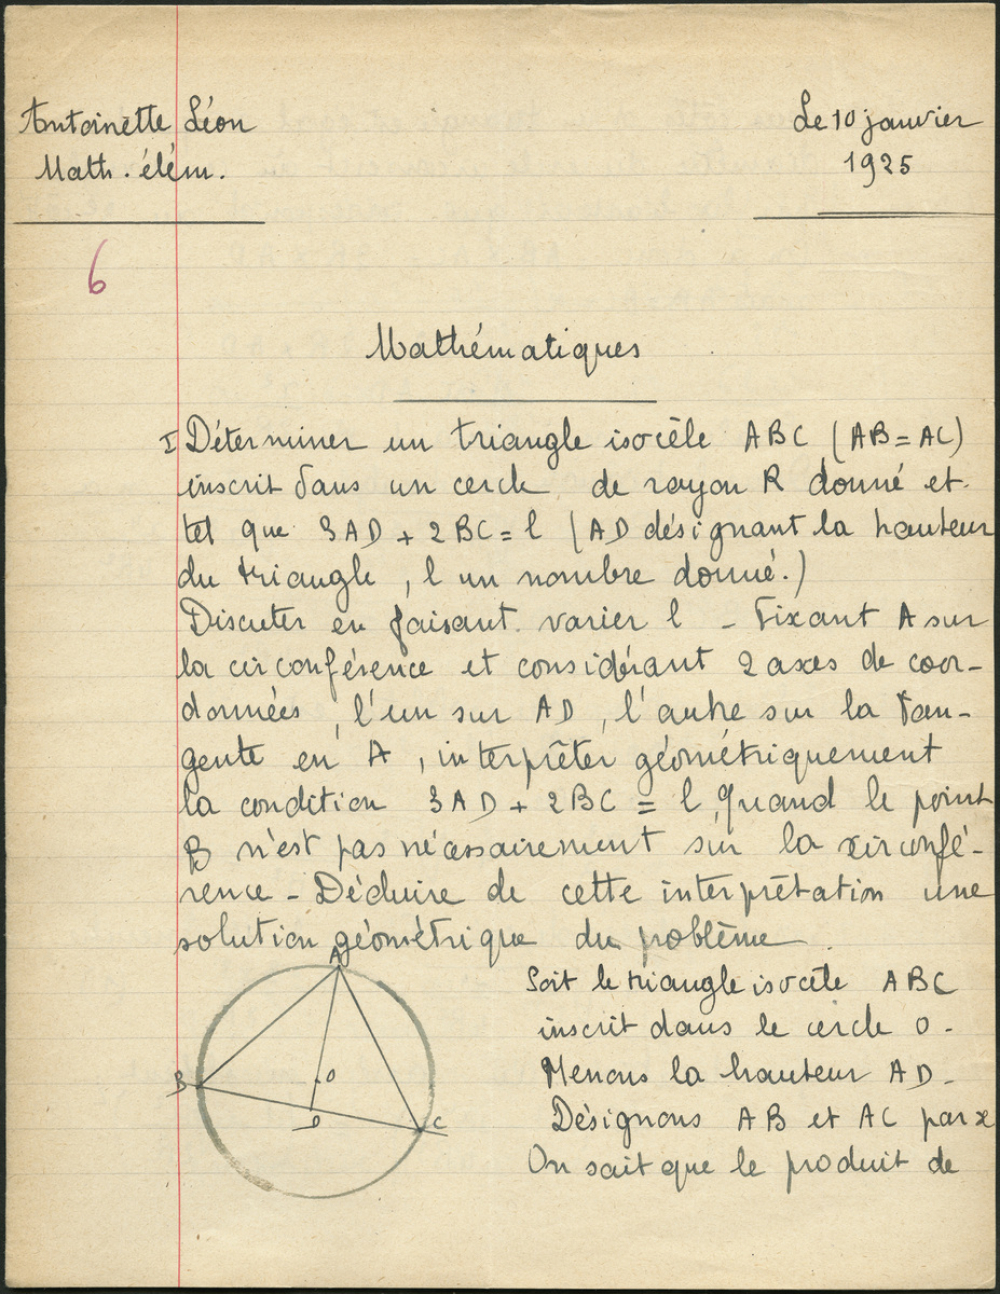 Antoinette Léon
Math. élém.
Le 10 janvier
1925
6
Mathématiques
I Déterminer un triangle isocèle ABC (AB = AC)
inscrit dans un cercle de rayon R donné et
tel que 3AD + 2BC = l (AD désignant la hauteur
du triangle, l un nombre donné.)
Discuter en faisant varier l - Fixant A sur
la circonférence et considérant 2 axes de coor-
données, l'un sur AD, l'autre sur la tan-
gente en A, interpréter géométriquement
la condition 3AD + 2BC = l, quand le point
B n'est pas nécessairement sur la circonfé-
rence - Déduire de cette interprétation une
solution géométrique du poblème.
A
B
O
D
C
Soit le triangle isocèle ABC
inscrit dans le cercle O.
Menons la hauteur AD.
Désignons AB et AC par x
On sait que le produit de